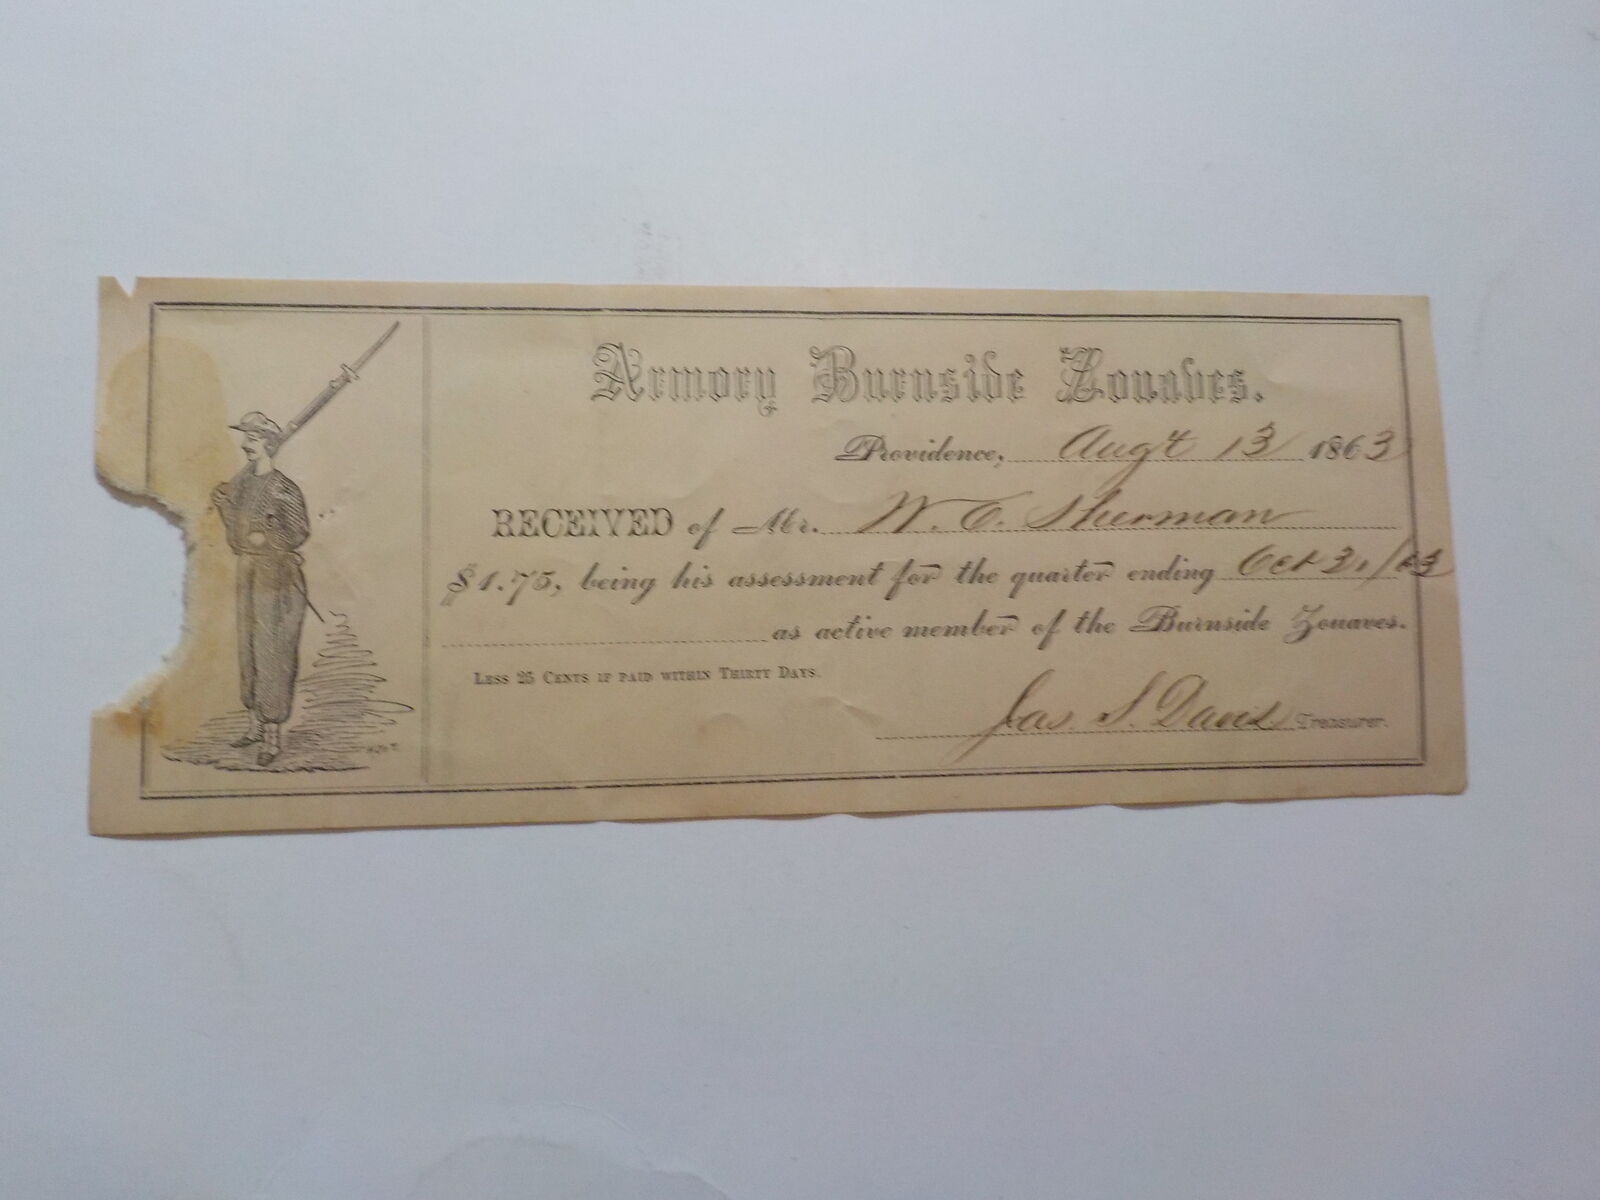 Armory Burnside Zouaves.
Providence, Augt 13 1863
RECEIVED of Mr. W. C. Sherman
$1.75, being his assessment for the quarter ending Oct 2, /63
as active member of the Burnside Zouaves.
LESS 25 CENTS IF PAID WITHIN THIRTY DAYS.
Jas. S. Davis Treasurer.